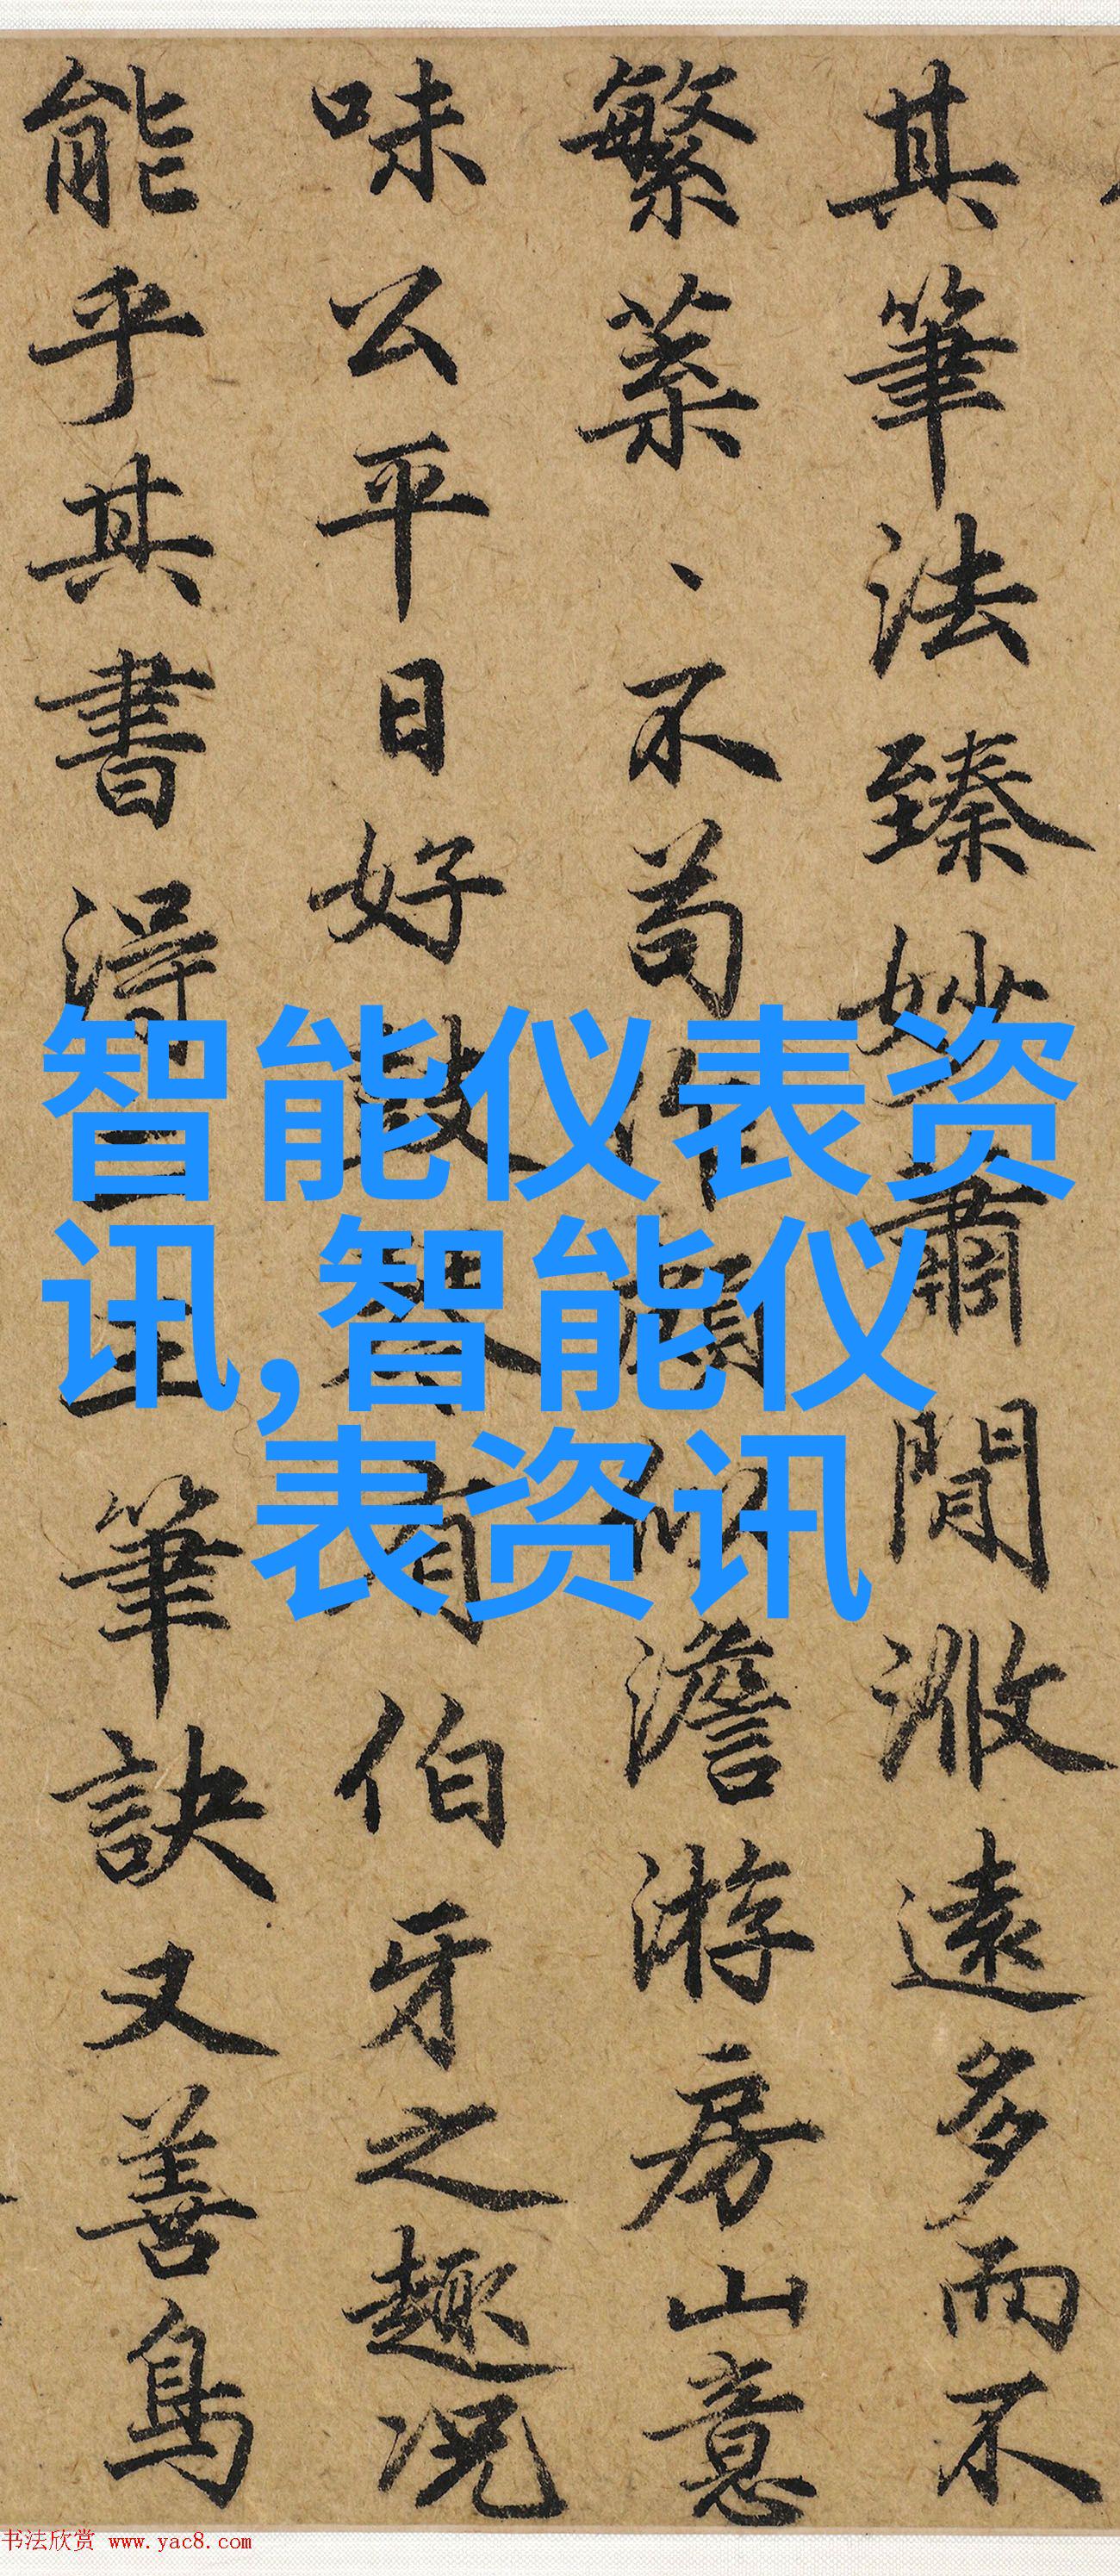 其筆法臻妙蕭閒遠多而不
繁葉、不苟作頗似澹游房山意
味公平日好鼓琴有伯牙之趣況
能乎其書得二王筆訣又善鳥
智能仪表资
讯,智能仪
表资讯
书法欣赏 www.yac8.com